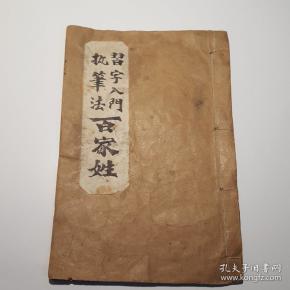 習字入門
执筆法
百家姓
孔夫子旧书网